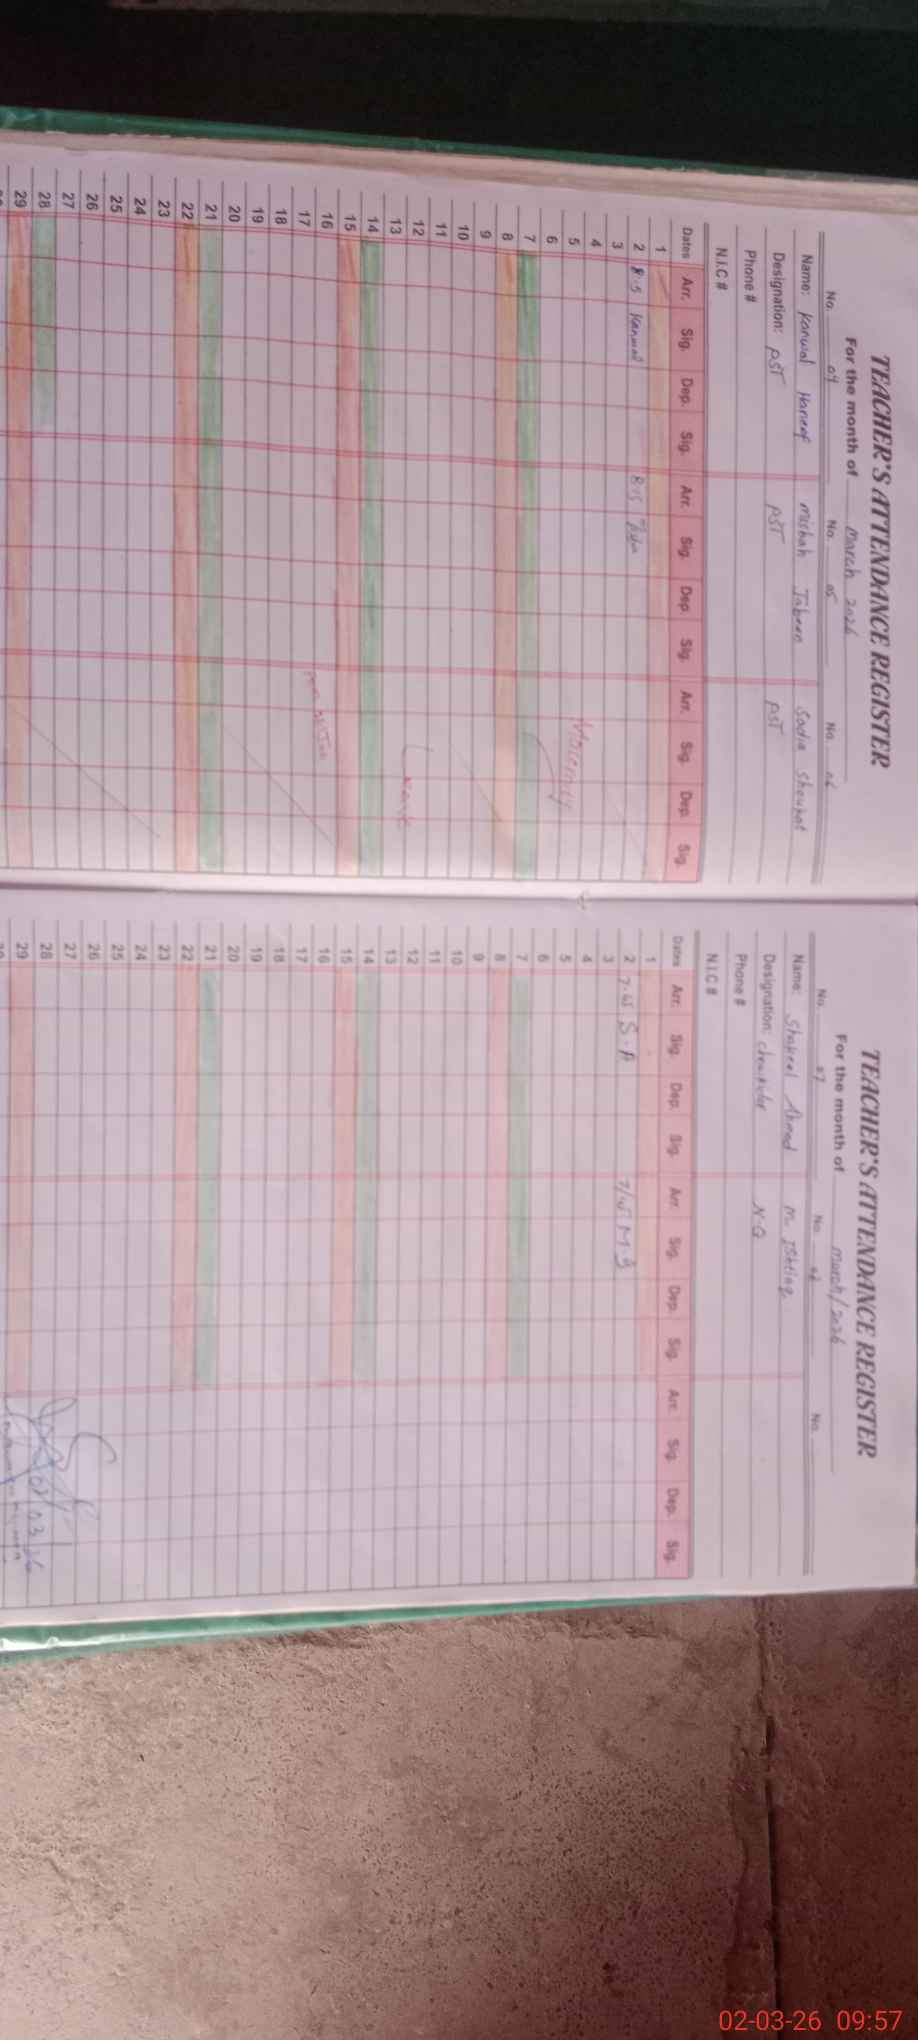 TEACHER'S ATTENDANCE REGISTER
For the month of March 2026
No. 04 No. 05 No. 06
Name: Kanwal Haneef misbah Jabeen Sadia Shoukat
Designation: PST PST PST
Phone #
N.I.C #
Dates Arr. Sig. Dep. Sig. Arr. Sig. Dep. Sig. Arr. Sig. Dep. Sig.
1
2 8:15 Kanwal 8:15
3
4
5 Maternity
6
7
8
9
10
11
12 Leave
13
14
15
16
17
18
19
20
21
22
23
24
25
26
27
28
29
TEACHER'S ATTENDANCE REGISTER
For the month of March/2026
No. 07 No. No.
Name: Shakeel Ahmed M. Ishtiaq
Designation: Chowkidar N.Q
Phone #
N.I.C #
Dates Arr. Sig. Dep. Sig. Arr. Sig. Dep. Sig. Arr. Sig. Dep. Sig.
1
2 7:45 S.A 7:45
3
4
5
6
7
8
9
10
11
12
13
14
15
16
17
18
19
20
21
22
23
24
25
26
27
28 03/26
29
02-03-26 09:57